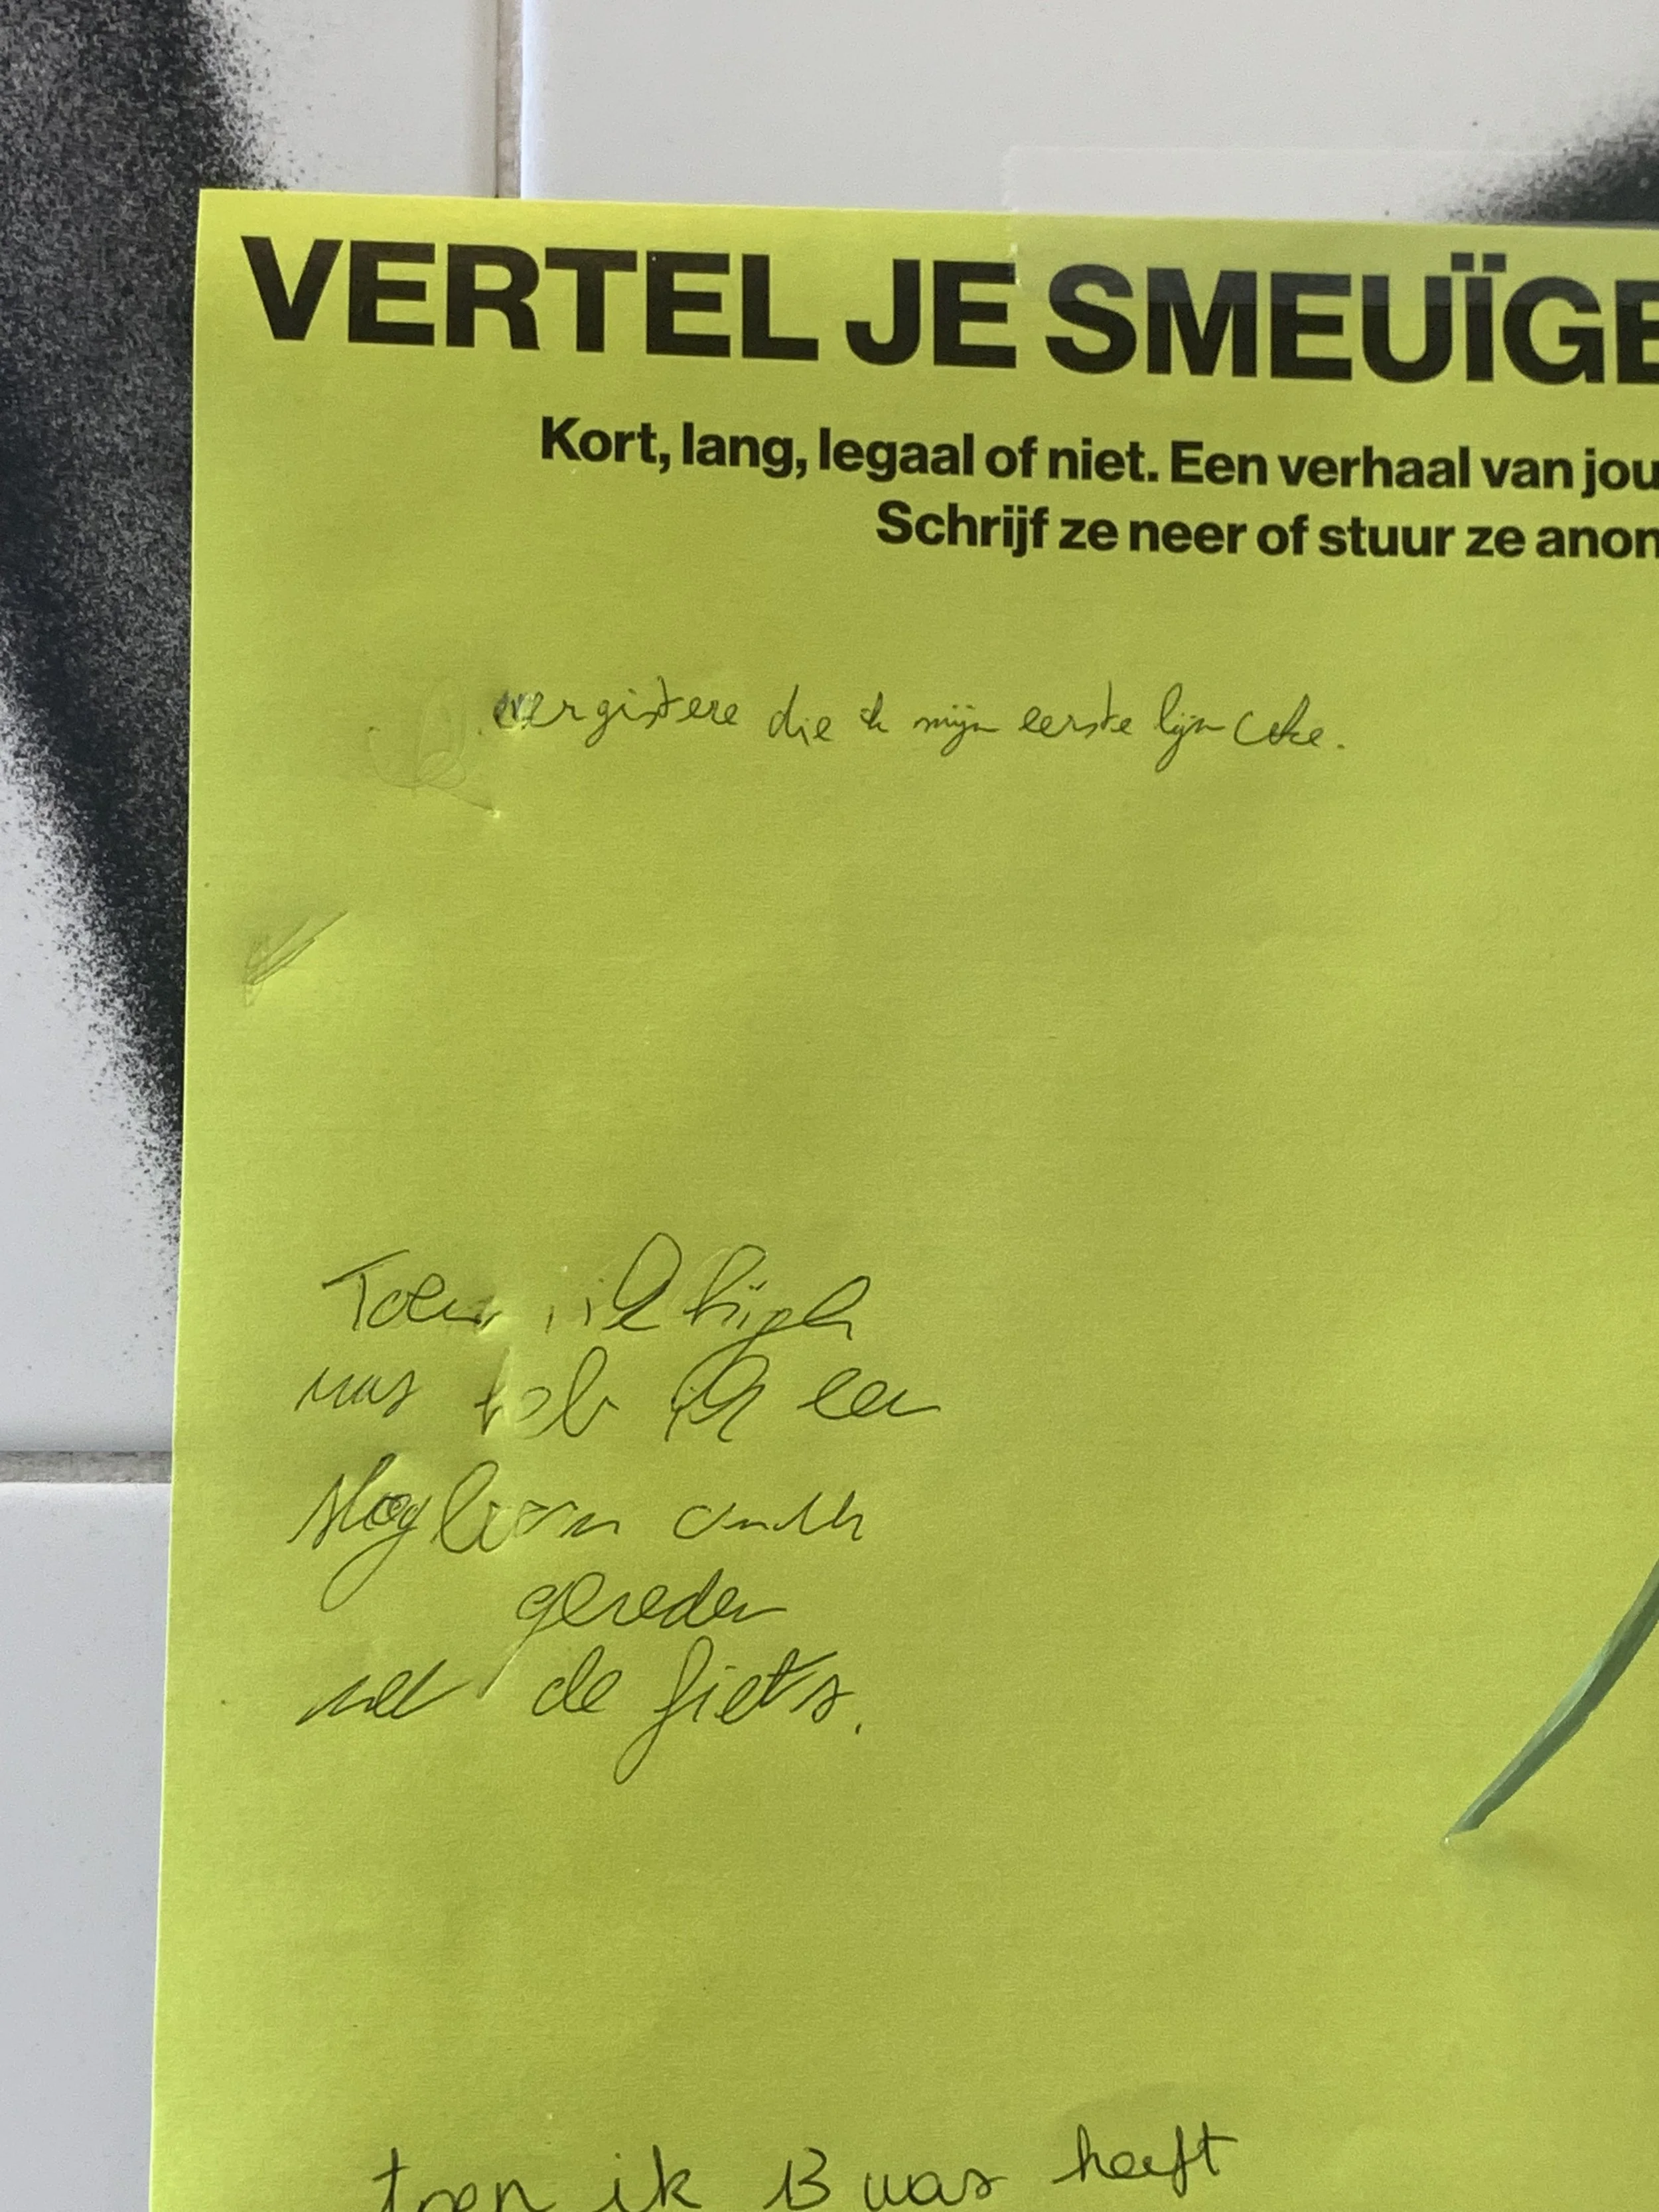 VERTEL JE SMEUÏGE
Kort, lang, legaal of niet. Een verhaal van jou
Schrijf ze neer of stuur ze anon
die ik mijn eerste lijn coke.
Toen ik high
was heb ik een
slagboom omver
gereden
met de fiets.
toen ik 13 was heeft